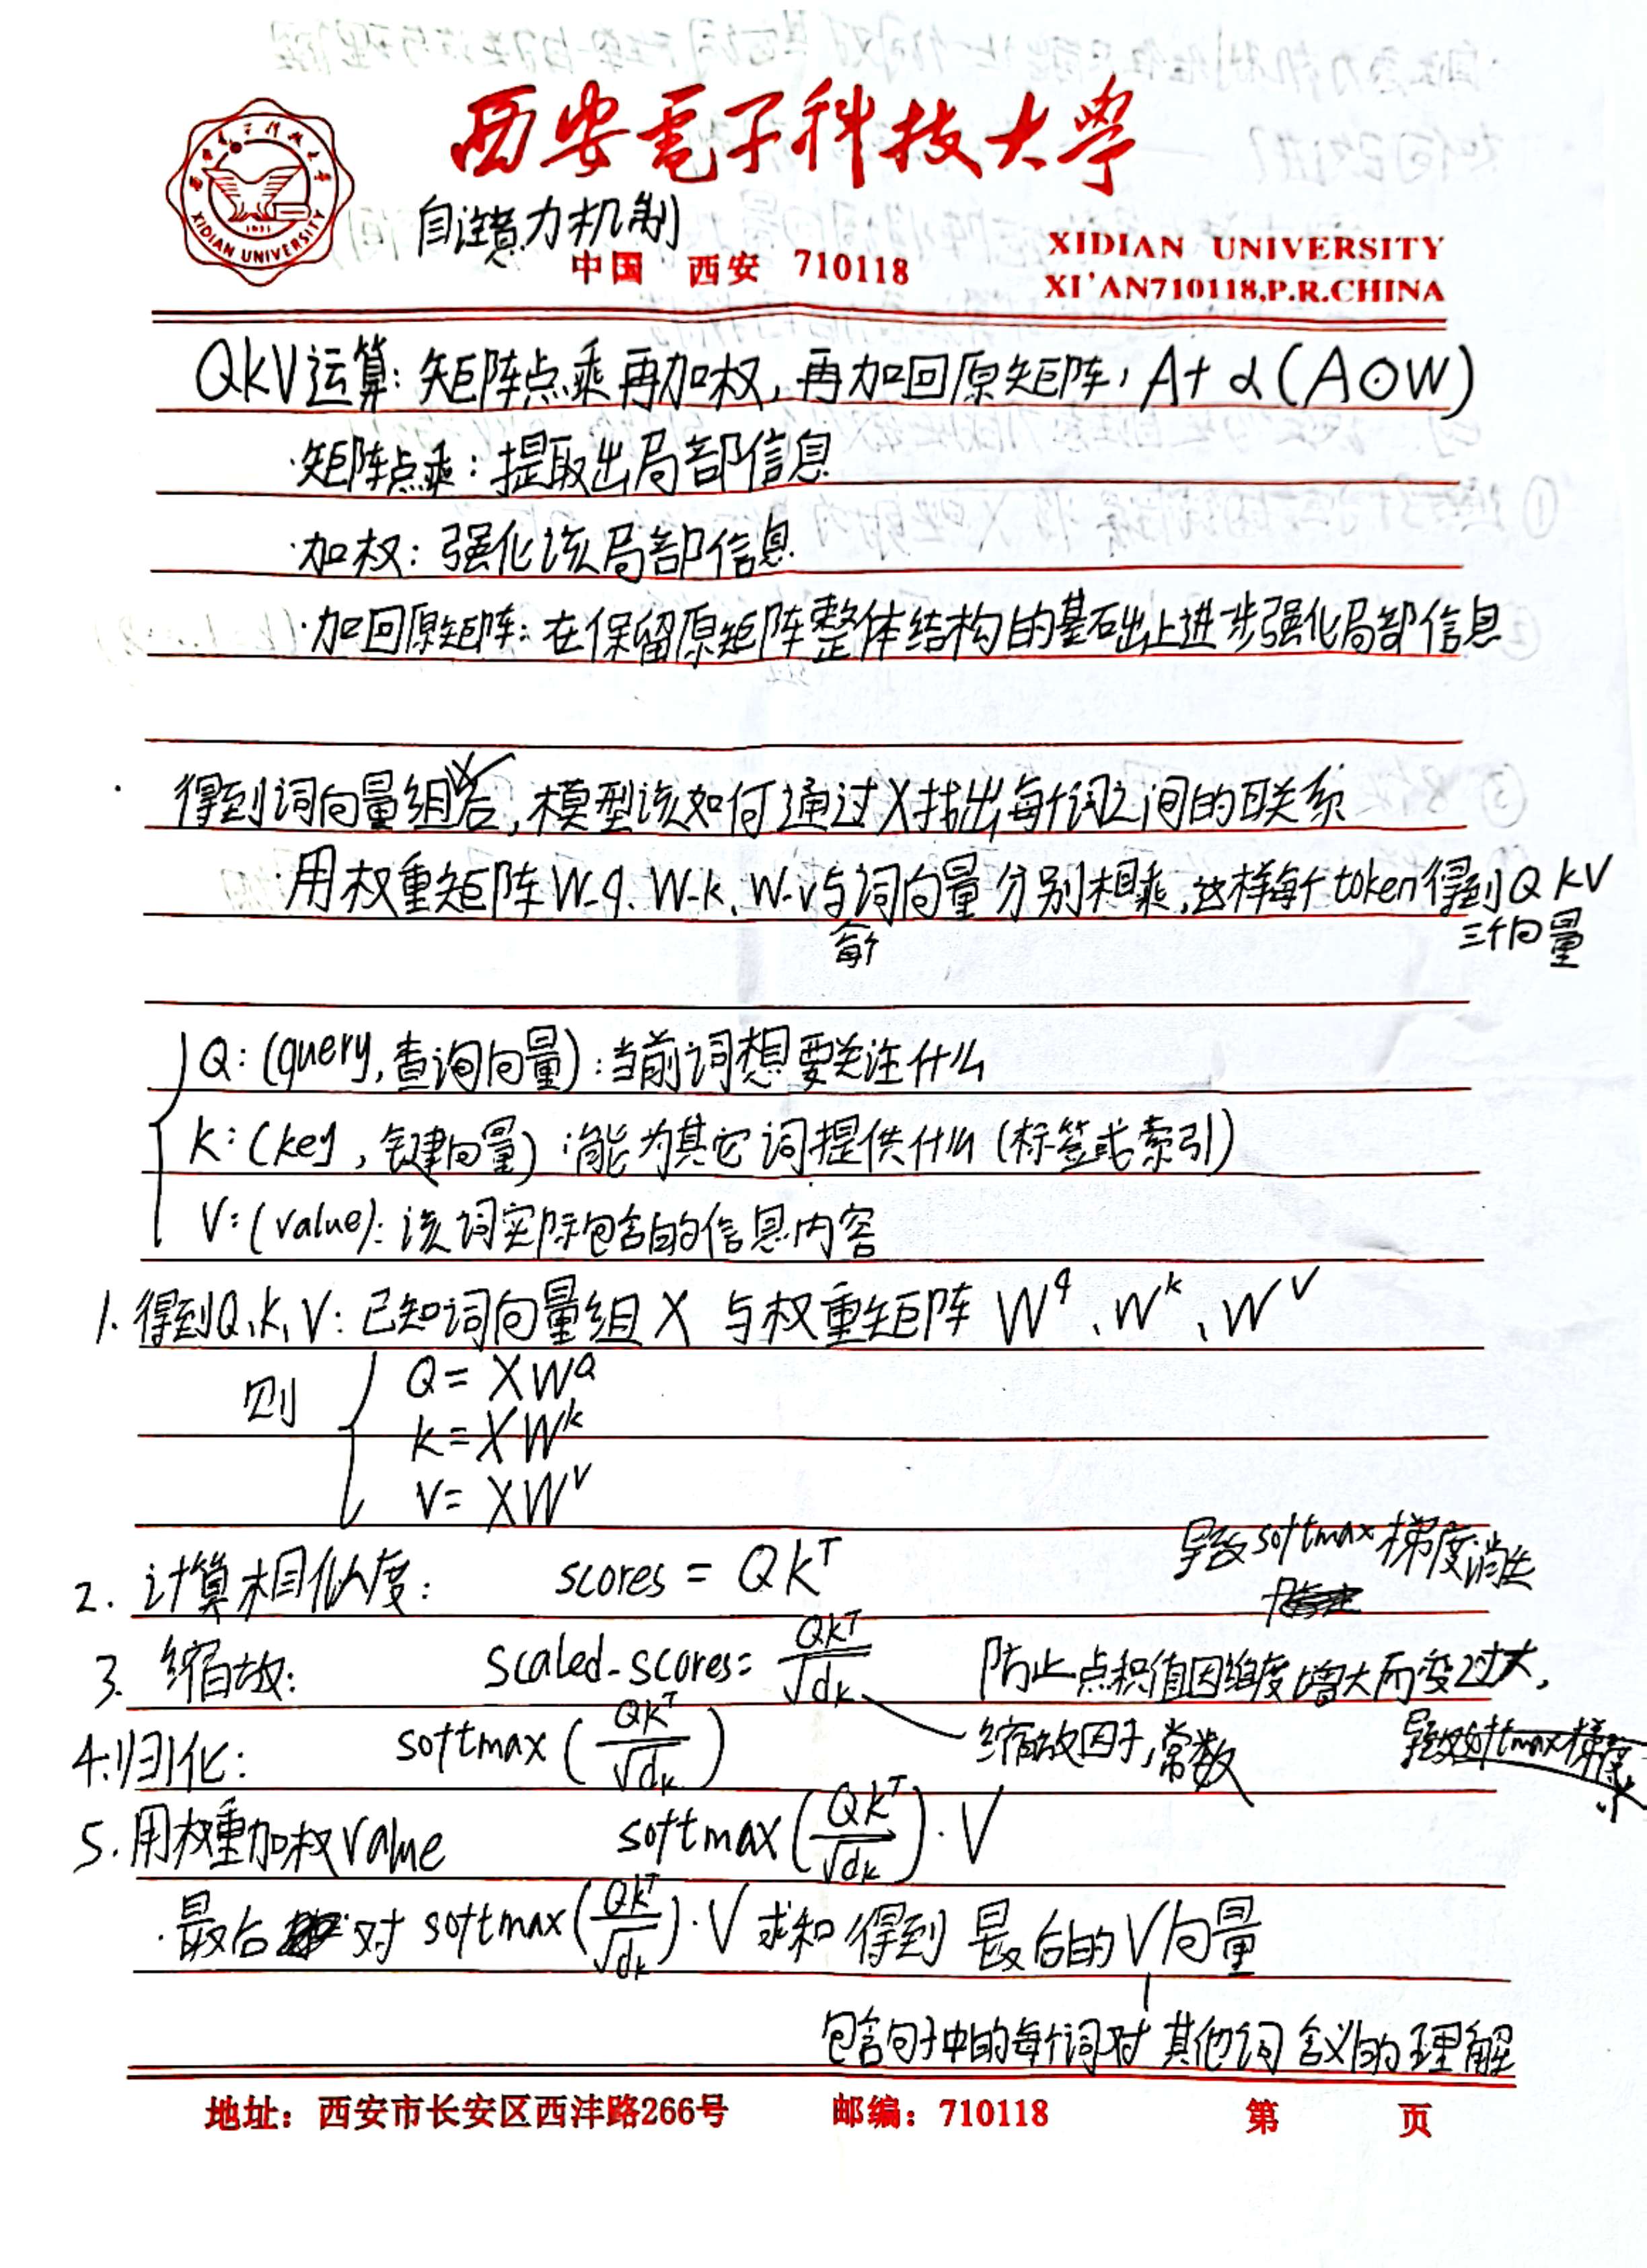 西安電子科技大學
XIDIAN UNIVERSITY
1931
自注意力机制
中国 西安 710118
XIDIAN UNIVERSITY
XI'AN710118,P.R.CHINA
QKV运算：矩阵点乘再加权，再加回原矩阵，A+α(A⊙W)
·矩阵点乘：提取出局部信息
·加权：强化该局部信息
·加回原矩阵：在保留原矩阵整体结构的基础上进步强化局部信息
· 得到词向量组X后，模型该如何通过X找出每个词之间的联系
·用权重矩阵W-q、W-k、W-v与词向量分别相乘，这样每个token得到Q KV
每个
三个向量
Q：(query,查询向量)：当前词想要关注什么
K：(key,键向量)：能为其它词提供什么(标签或索引)
V：(value)：该词实际包含的信息内容
1.得到Q、K、V：已知词向量组X 与权重矩阵 W^q、W^k、W^V
则 Q=XW^Q
K=XW^k
V=XW^V
导致softmax梯度消失
2.计算相似度： scores = QK^T
3.缩放： scaled-scores= QK^T/√dk 防止点积值因维度增大而变过大，
缩放因子，常数
导致softmax梯度
4.归一化： softmax(QK^T/√dk)
5.用权重加权Value softmax(QK^T/√dk)·V
·最后对softmax(QK^T/√dk)·V求和得到最后的V向量
包含句子中的每个词对其他词含义的理解
地址：西安市长安区西沣路266号 邮编：710118 第 页